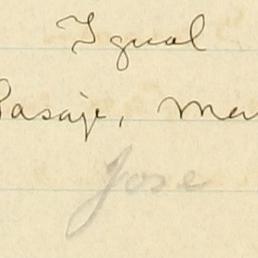 Igual
Pasaje, Ma
Jose